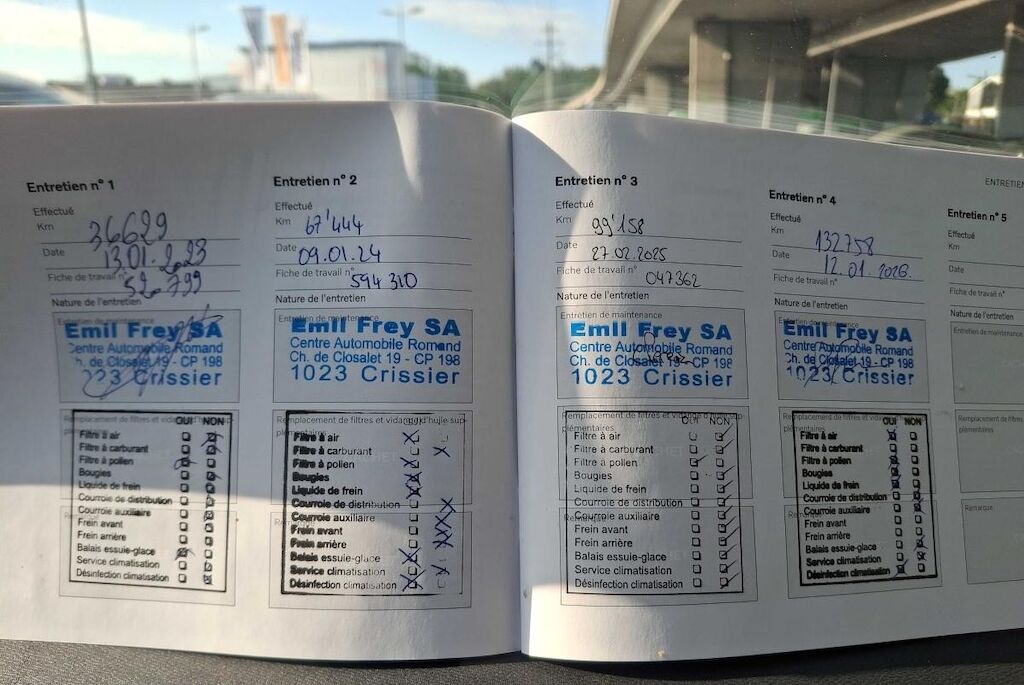 Entretien n° 1
Effectué
Km 36629
Date 13.01.2023
Fiche de travail n° 526799
Nature de l'entretien
Entretien de maintenance
Emil Frey SA
Centre Automobile Romand
Ch. de Closalet 19 - CP 198
1023 Crissier
Remplacement de filtres et vidange d'huile sup-
plémentaires
OUI NON
Filtre à air
Filtre à carburant
Filtre à pollen
Bougies
Liquide de frein
Courroie de distribution
Courroie auxiliaire
Frein avant
Frein arrière
Balais essuie-glace
Service climatisation
Désinfection climatisation
Entretien n° 2
Effectué
Km 67'444
Date 09.01.24
Fiche de travail n° 594310
Nature de l'entretien
Entretien de maintenance
Emil Frey SA
Centre Automobile Romand
Ch. de Closalet 19 - CP 198
1023 Crissier
Remplacement de filtres et vidange d'huile sup-
plémentaires
Filtre à air
Filtre à carburant
Filtre à pollen
Bougies
Liquide de frein
Courroie de distribution
Courroie auxiliaire
Frein avant
Frein arrière
Balais essuie-glace
Service climatisation
Désinfection climatisation
Entretien n° 3
Effectué
Km 99'158
Date 27.02.2025
Fiche de travail n° 047362
Nature de l'entretien
Entretien de maintenance
Emil Frey SA
Centre Automobile Romand
Ch. de Closalet 19 - CP 198
1023 Crissier
Remplacement de filtres et vidange d'huile sup-
plémentaires
OUI NON
Filtre à air
Filtre à carburant
Filtre à pollen
Bougies
Liquide de frein
Courroie de distribution
Courroie auxiliaire
Frein avant
Frein arrière
Balais essuie-glace
Service climatisation
Désinfection climatisation
Remarque
ENTRETIEN
Entretien n° 4
Effectué
Km 132758
Date 12.01.2026.
Fiche de travail n°
Nature de l'entretien
Entretien de maintenance
Emil Frey SA
Centre Automobile Romand
Ch. de Closalet 19 - CP 198
1023 Crissier
Remplacement de filtres et vidange d'huile sup-
plémentaires
OUI NON
Filtre à air
Filtre à carburant
Filtre à pollen
Bougies
Liquide de frein
Courroie de distribution
Courroie auxiliaire
Frein avant
Frein arrière
Balais essuie-glace
Service climatisation
Désinfection climatisation
Entretien n° 5
Effectué
Km
Date
Fiche de travail n°
Nature de l'entretien
Entretien de maintenance
Remplacement de filtres
plémentaires
Remarque